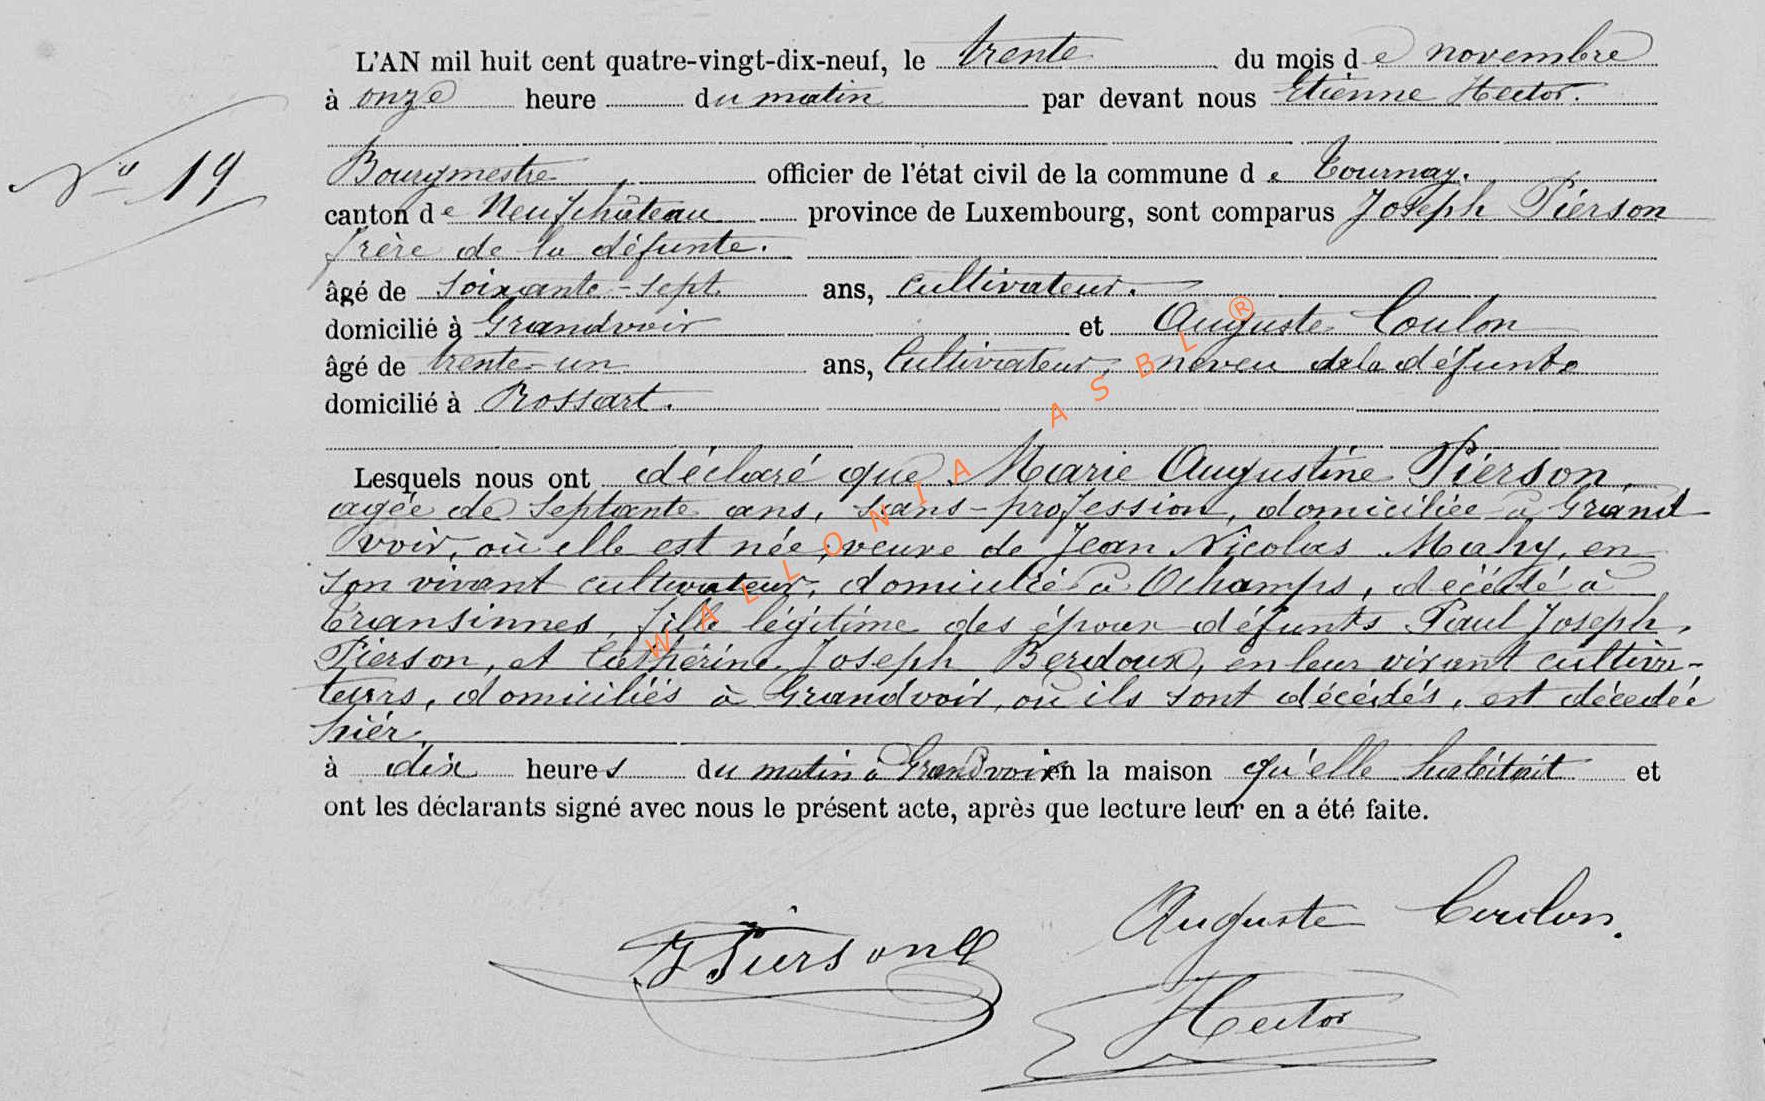 L'AN mil huit cent quatre-vingt-dix-neuf, le trente du mois de novembre
à onze heure du matin par devant nous Etienne Hector.
N° 19
Bourgmestre officier de l'état civil de la commune de Tournay.
canton de Neufchâteau province de Luxembourg, sont comparus Joseph Pierson
frère de la défunte.
âgé de soixante-sept ans, cultivateur.
domicilié à Grandvoir et Auguste Coulon
âgé de trente-un ans, Cultivateur, neveu de la défunte
domicilié à Rossart.
Lesquels nous ont déclaré que Marie Augustine Pierson,
agée de septante ans, sans-profession, domiciliée à Grand
voir, où elle est née, veuve de Jean Nicolas Mahy, en
son vivant cultivateur, domicilié à Ochamps, décédé à
Transinnes, fille légitime des époux défunts Paul Joseph,
Pierson, et Cathérine Joseph Berdoux, en leur vivant cultiva-
teurs, domiciliés à Grandvoir, où ils sont décédés, est décedée
hier,
à dix heures du matin à Grandvoir en la maison qu'elle habitait et
ont les déclarants signé avec nous le présent acte, après que lecture leur en a été faite.
J Pierson Auguste Coulon.
Hector
WALLONIA ASBL ®